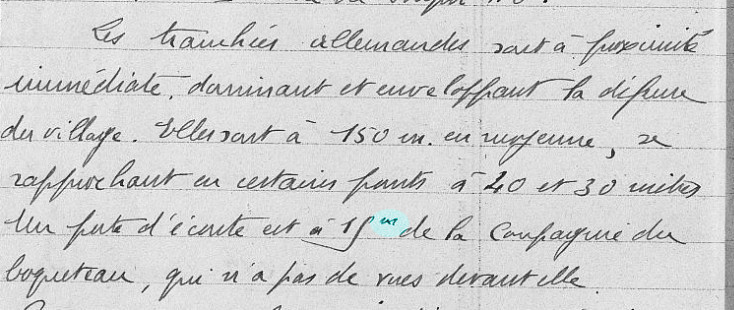 Les tranchées allemandes sont à proximité
immédiate, dominant et enveloppant la défense
du village. Elles sont à 150 m. en moyenne, se
rapprochant en certains points à 40 et 30 mètres
Un poste d'écoute est à 15 m de la Compagnie du
boqueteau, qui n'a pas de vues devant elle.